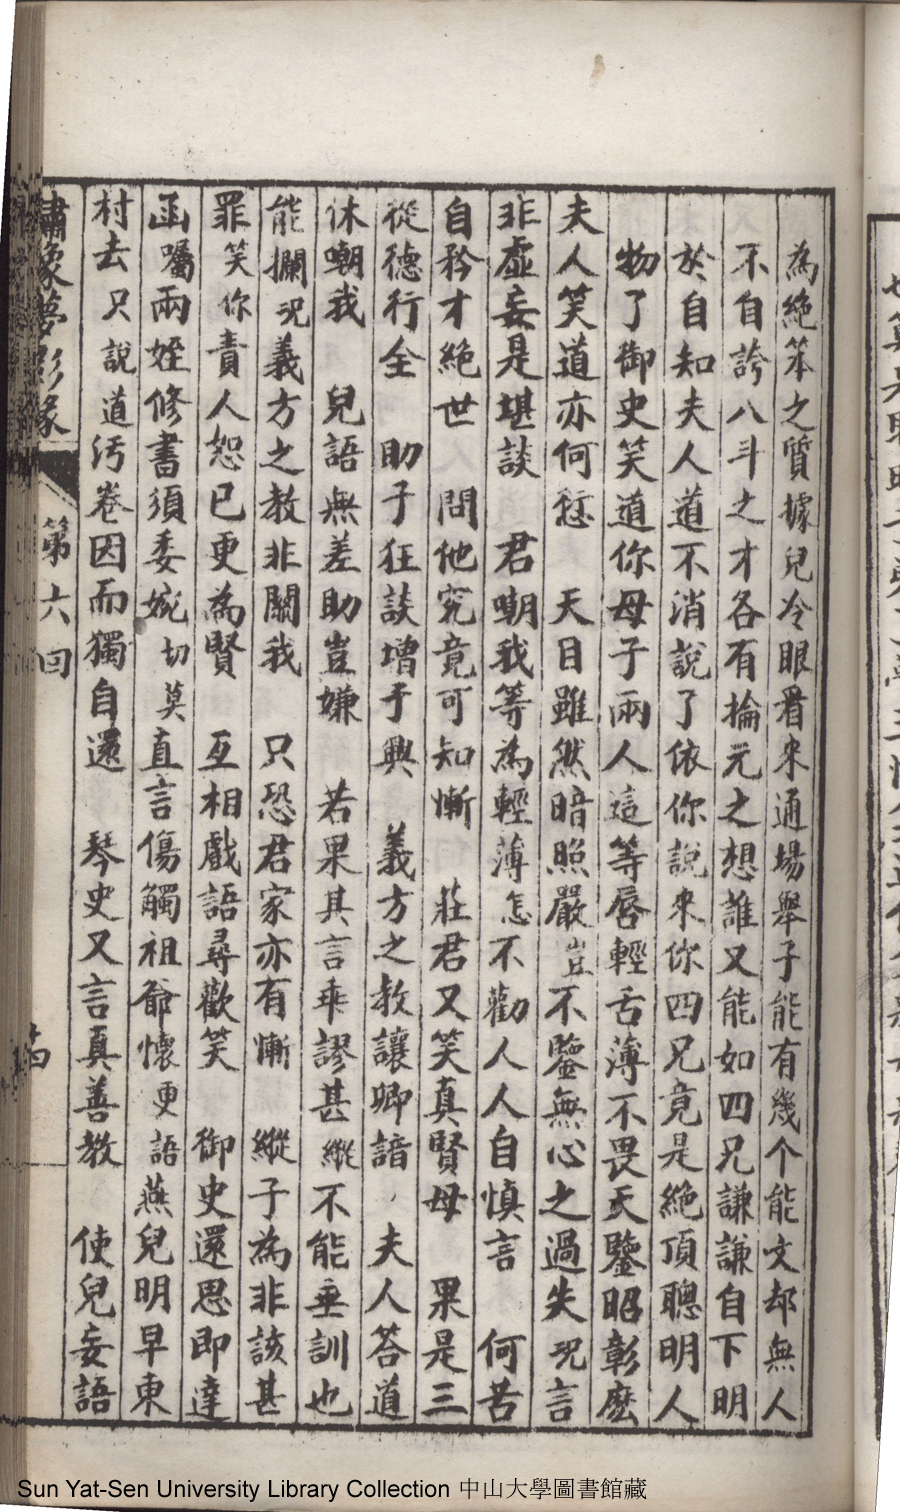 為絶笨之質據兒冷眼看來通場舉子能有幾个能文却無人
不自誇八斗之才各有掄元之想誰又能如四兄謙謙自下明
於自知夫人道不消說了依你說來你四兄竟是絶頂聰明人
物了御史笑道你母子兩人這等唇輕舌薄不畏天鑒昭彰麽
夫人笑道亦何愆 天目雖然暗照嚴豈不鑒無心之過失况言
非虛妄是堪談 君嘲我等為輕薄怎不勸人人自慎言 何苦
自矜才絶世 問他究竟可知慚 莊君又笑真賢母 果是三
從德行全 助子狂談增于興 義方之教讓卿諳 夫人答道
休嘲我 兒語無差助豈嫌 若果其言乖謬甚縱不能垂訓也
能攔况義方之教非關我 只恐君家亦有慚 縱子為非該甚
罪笑你責人恕已更為賢 互相戲語尋歡笑 御史還思即達
函囑兩姪修書須委婉切莫直言傷觸祖爺懷更語燕兒明早東
村去只說道污卷因而獨自還 琴史又言真善教 使兒妄語
繡像夢影緣 第六回 十四
Sun Yat-Sen University Library Collection 中山大學圖書館藏